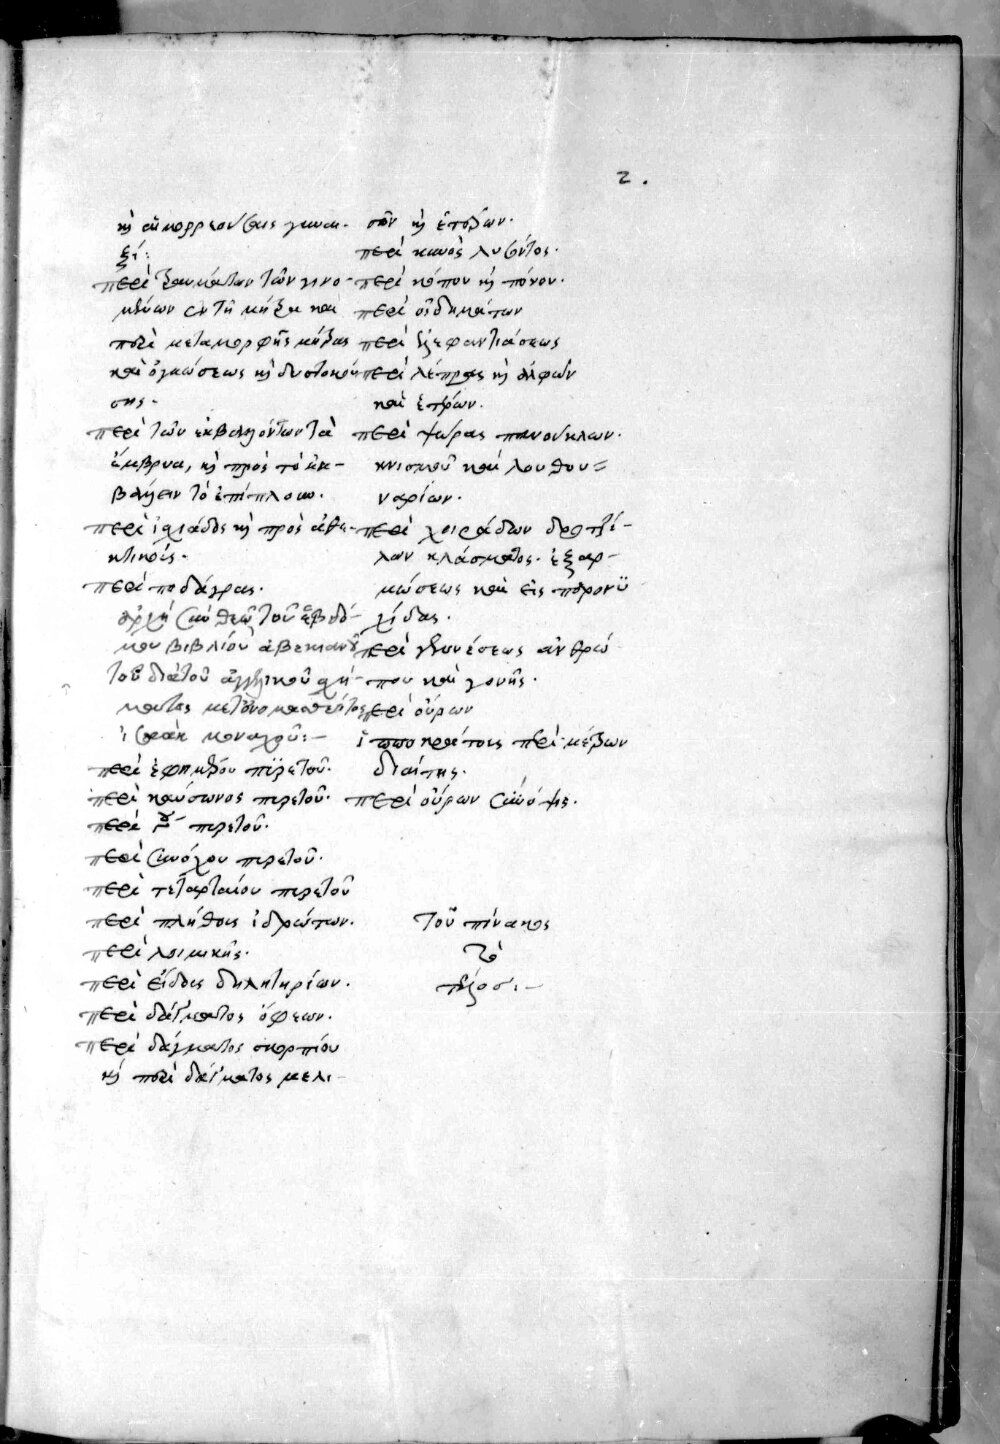 2.
κ αἱμορρεούσαις γυναι-
ξί:
περὶ τραυμάτων τῶν γινο-
μένων ἐν τῇ μήτρα καὶ
περὶ μεταμορφῆς μήτρας
καὶ ὀγκώσεως κ δυστοκού
σης.
περὶ τῶν ἐκβαλλόντων τὰ
ἔμβρυα, κ πρὸς τὸ ἐκ-
βάλλειν τὸ
περὶ ἰσχιάδος κ πρὸς ἀρθρι-
τικούς.
περὶ ποδάγρας.
ἀρχὴ σὺν θεῷ τοῦ ἑβδό-
μου βιβλίου
τοῦ διὰ τοῦ ἀγγελικοῦ σχή-
ματος μετονομασθέντος
μοναχοῦ:-
περὶ ἐφημέρου πυρετοῦ.
περὶ καύσωνος πυρετοῦ.
περὶ πυρετοῦ.
περὶ συνόχου πυρετοῦ.
περὶ τεταρταίου πυρετοῦ
περὶ πλήθους ἱδρώτων.
περὶ λοιμικῆς.
περὶ εἴδους δηλητηρίων.
περὶ δάγματος ὄφεων.
περὶ δάγματος σκορπίου
κ περὶ δάγματος μελι-
σῶν κ ἑτέρων.
περὶ κυνὸς λυσῶντος.
περὶ κόπου κ πόνου.
περὶ οἰδημάτων
περὶ ἐλεφαντιάσεως
περὶ λέπρας κ ἀλφῶν
καὶ ἑτέρων.
περὶ ψώρας πανούκλων.
κνισμοῦ καὶ
περὶ χοιράδων
κλάσματος. ἐξαρ-
μώσεως καὶ εἰς παρονυ
χίδας.
περὶ γεννέσεως ἀνθρώ
που καὶ γονῆς.
περὶ οὔρων
ἱπποκράτους περὶ
διαίτης.
περὶ οὔρων σύνοψις.
τοῦ πίνακος
τὸ
τέλος:-